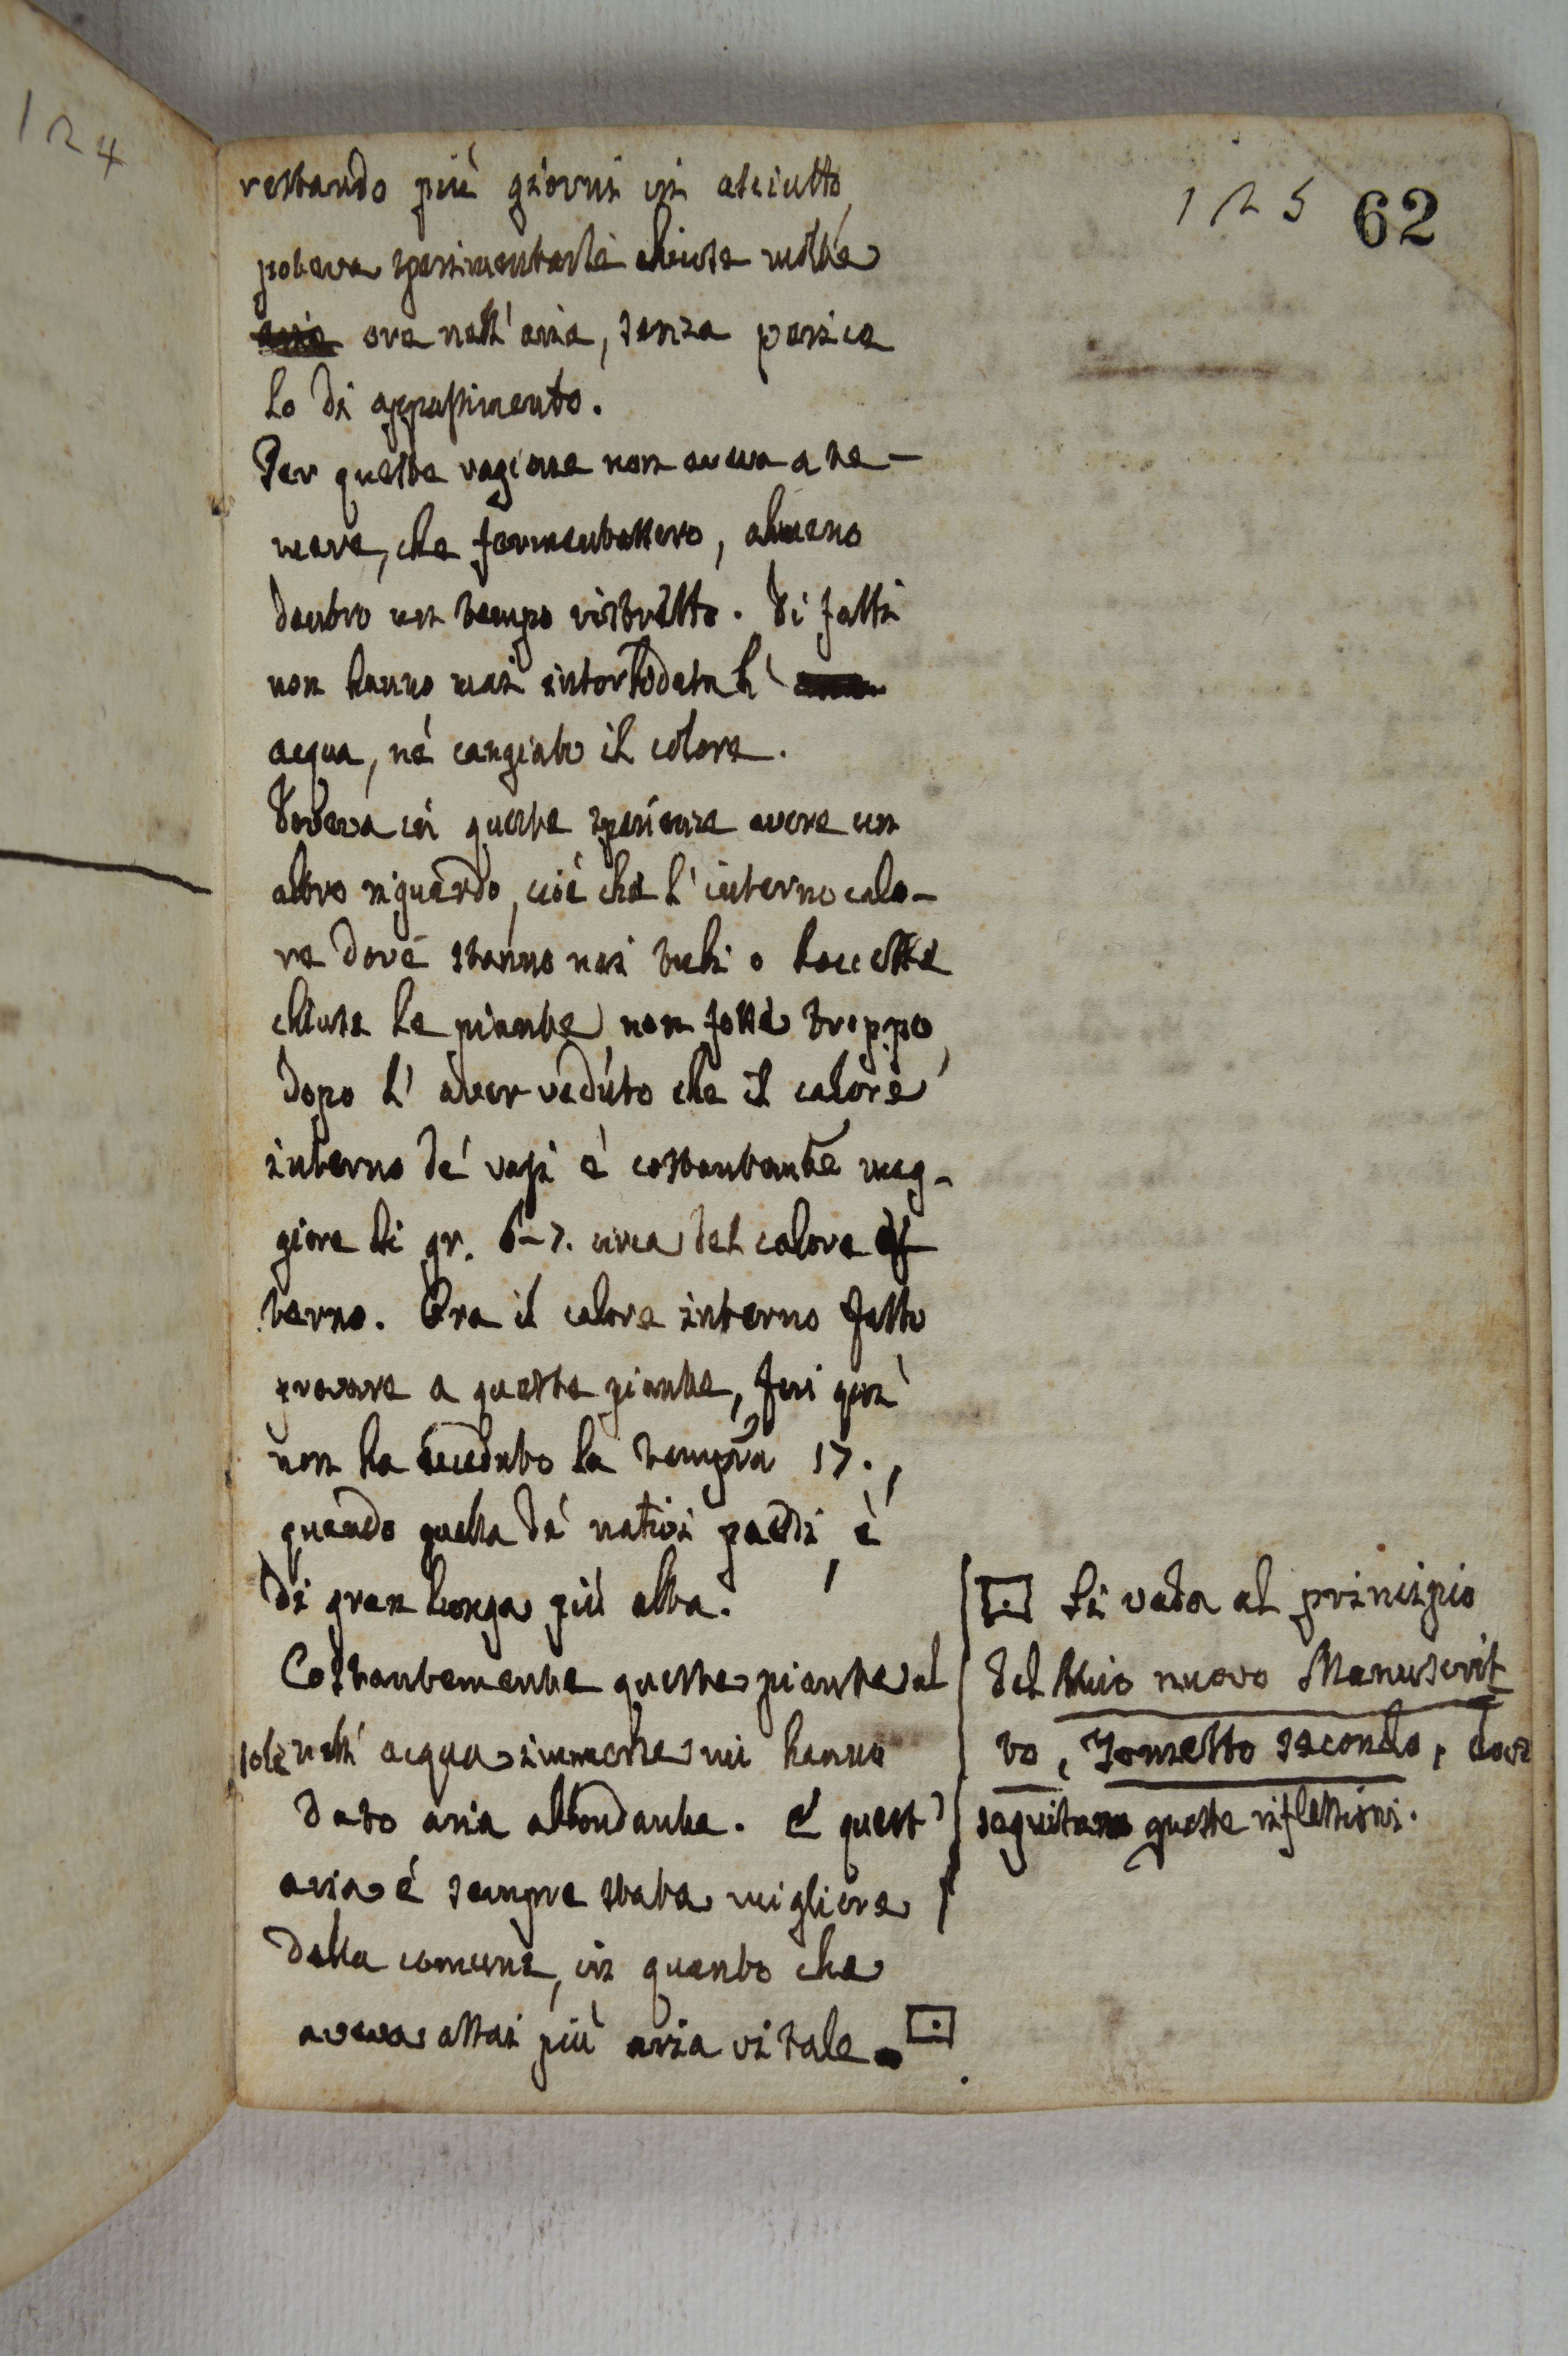 124
125 62
restando più giorni in asciutto,
poteva sperimentarle chiuse molte
ore nell'aria, senza perico
lo di appassimento.
Per questa ragione non aveva a te-
mere, che fermentassero, almeno
dentro un tempo ristretto. Di fatti
non hanno mai intorbidata l'
acqua, nè cangiato il colore.
Doveva in queste sperienze avere un
altro riguardo, cioè che l'interno calo-
re dove stanno nei tubi o boccette
chiuse le piante non fosse troppo,
dopo l'aver veduto che il calore
interno de' vasi è costantemte mag-
giore di gr. 6-7. circa del calore es
terno. Ora il calore interno fatto
provare a queste piante, fin quì
non ha ecceduto la tempra 17.,
quando quella de' nativi paesi, è
di gran lunga più alta.
Costantemente queste piante al
sole nell'acqua immerse mi hanno
dato aria abbondante. E quest'
aria è sempre stata migliore
della comune, in quanto che
aveva assai più aria vitale.
Si veda al principio
del Mio nuovo Manuscrit
to, Tometto secondo, dove
seguitano queste riflessioni.